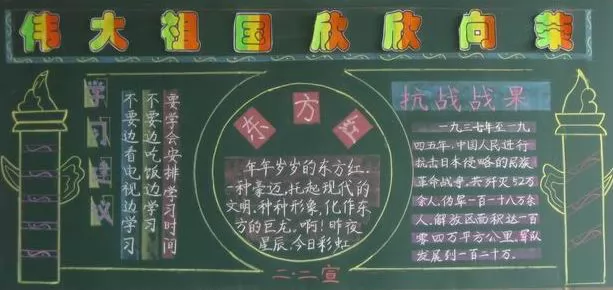 伟大祖国欣欣向荣
学习建议
要学会安排学习时间
不要边吃饭边学习
不要边看电视边学习
东方红
年年岁岁的东方红,
一种豪迈,托起现代的
文明,种种形象,化作东
方的巨龙。啊!昨夜
星辰,今日彩虹
二·二宣
抗战战果
一九三七年至一九
四五年,中国人民进行
抗击日本侵略的民族
革命战争,共歼灭52万
余人,伪军一百一十八万余
人,解放区面积达一百
零四万平方公里,军队
发展到一百二十万。